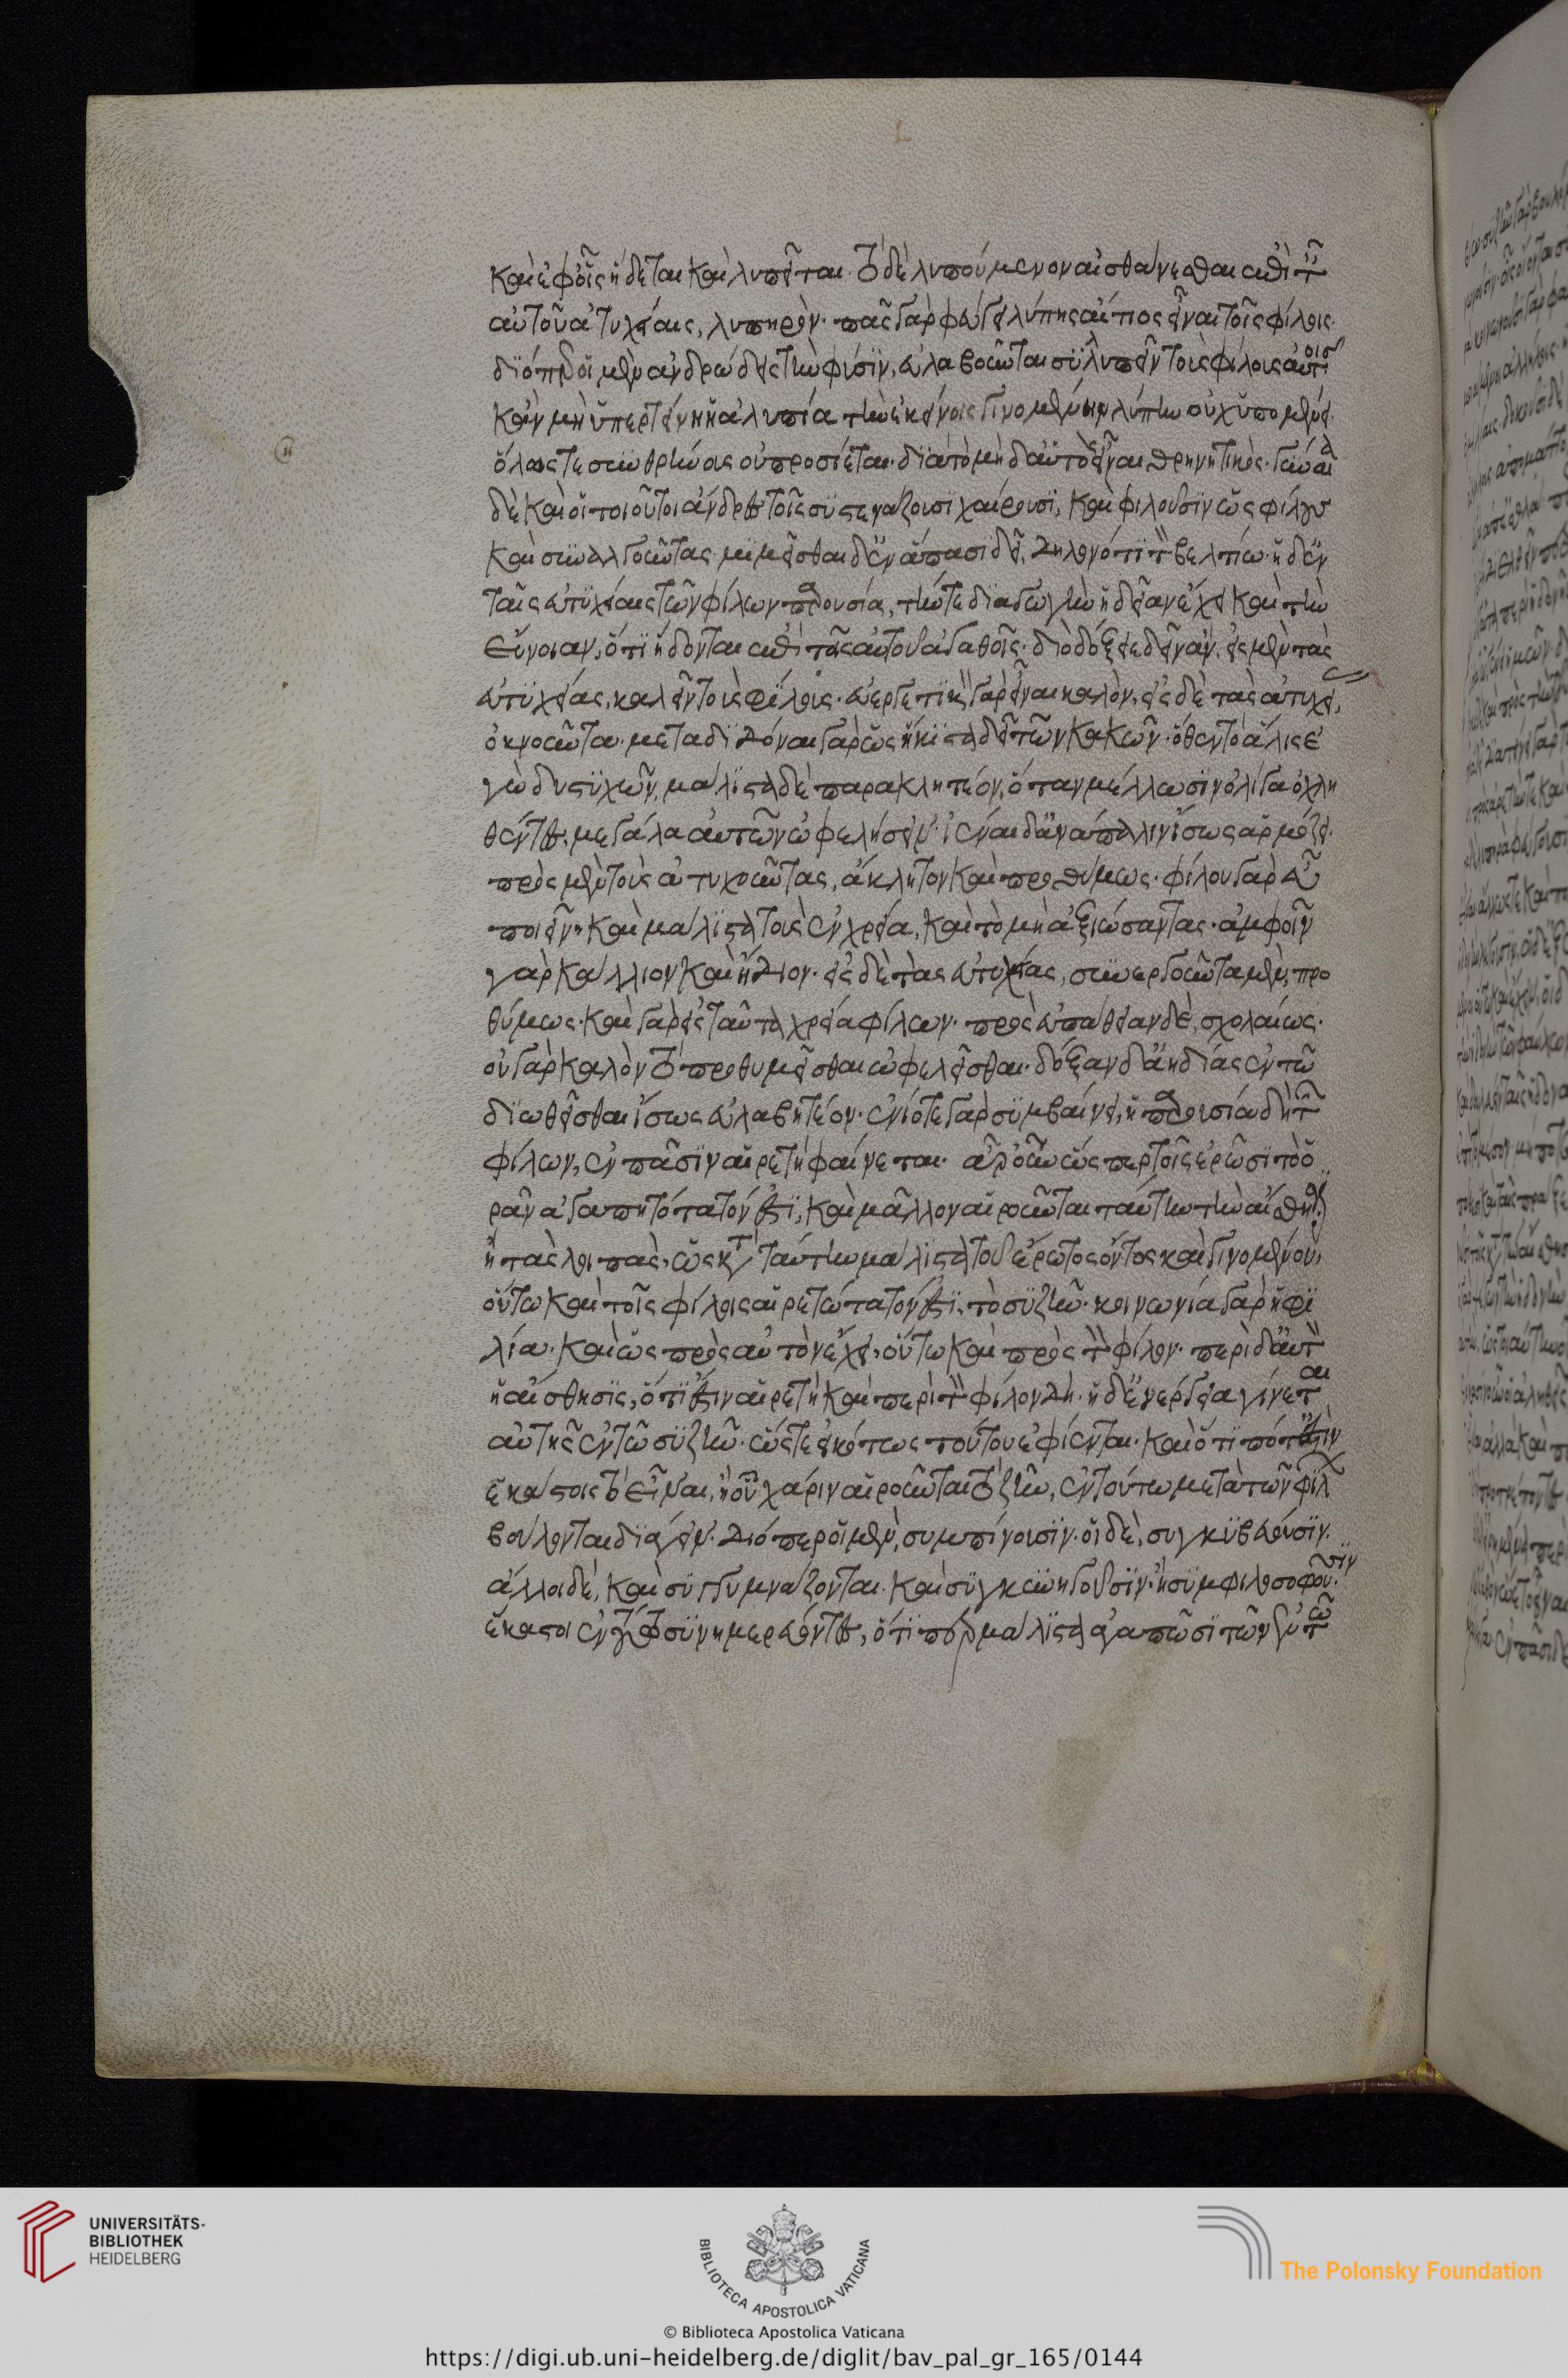 καὶ ἐφ' οἷς ἥδεται καὶ λυπεῖται. τὸ δὲ λυπούμενον αἰσθάνεσθαι ἐπὶ ταῖς
αὐτοῦ ἀτυχίαις, λυπηρόν. πᾶς γὰρ φεύγει λύπης αἴτιος εἶναι τοῖς φίλοις.
διόπερ οἱ μὲν ἀνδρώδεις τὴν φύσιν, εὐλαβοῦνται συλλυπεῖν τοὺς φίλους αὐτοῖς
κἂν μὴ ὑπερτείνῃ ἡ ἀλυπία τὴν ἐκείνοις γινομένην λύπην οὐχ ὑπομένει.
ὅλως τε συνθρήνους οὐ προσίεται. διὰ τὸ μὴ δ' αὐτὸς εἶναι θρηνητικός. γύναια
δὲ καὶ οἱ τοιοῦτοι ἄνδρες τοῖς συστενάζουσι χαίρουσι, καὶ φιλοῦσιν ὡς φίλους
καὶ συναλγοῦντας. μιμεῖσθαι δ' ἐν ἅπασι δεῖ, δηλονότι τὸν βελτίω. ἡ δ' ἐν
ταῖς εὐτυχίαις τῶν φίλων παρουσία, τήν τε διαγωγὴν ἡδεῖαν ἔχει καὶ τὴν
εὔνοιαν, ὅτι ἥδονται ἐπὶ τοῖς αὐτοῦ ἀγαθοῖς. διὸ δόξειε δεῖν ἂν, εἰς μὲν τὰς
εὐτυχίας, καλεῖν τοὺς φίλους. εὐεργετικὸν γὰρ εἶναι καλόν, εἰς δὲ τὰς ἀτυχί,
ὀκνοῦντα. μεταδιδόναι γὰρ ὡς ἥκιστα δεῖ τῶν κακῶν. ὅθεν τὸ ἅλις ἐ
γὼ δυστυχῶν, μάλιστα δὲ παρακλητέον, ὅταν μέλλωσιν ὀλίγα ὀχλη
θέντες, μεγάλα αὐτῶν ὠφελήσειν. ἰέναι δ' ἀνάπαλιν ἴσως ἁρμόζει.
πρὸς μὲν τοὺς ἀτυχοῦντας, ἄκλητον καὶ προθύμως. φίλου γὰρ εὖ
ποιεῖν. καὶ μάλιστα τοὺς ἐν χρείᾳ, καὶ τὸ μὴ ἀξιώσαντας. ἀμφοῖν
γὰρ κάλλιον καὶ ἥδιον. εἰς δὲ τὰς εὐτυχίας, συνεργοῦντα μὲν, προ
θύμως. καὶ γὰρ εἰς ταῦτα χρεία φίλων. πρὸς εὐπάθειαν δὲ, σχολαίως.
οὐ γὰρ καλὸν τὸ προθυμεῖσθαι ὠφελεῖσθαι. δόξαν δ' ἀηδίας ἐν τῷ
διωθεῖσθαι ἴσως εὐλαβητέον. ἐνίοτε γὰρ συμβαίνει, ἡ παρουσία δὴ τῶν
φίλων, ἐν πᾶσιν αἱρετὴ φαίνεται. ἆρ' οὖν ὥσπερ τοῖς ἐρῶσι τὸ ὁ
ρᾶν ἀγαπητότατόν ἐστι, καὶ μᾶλλον αἱροῦνται ταύτην τὴν αἴσθησιν
ἢ τὰς λοιπὰς, ὡς κατὰ ταύτην μάλιστα τοῦ ἔρωτος ὄντος καὶ γινομένου,
οὕτω καὶ τοῖς φίλοις αἱρετώτατόν ἐστι, τὸ συζῆν. κοινωνία γὰρ ἡ φι
λία. καὶ ὡς πρὸς αὑτὸν ἔχει, οὕτω καὶ πρὸς τὸν φίλον. περὶ δ' αὐτὸν
ἡ αἴσθησις, ὅτι ἔστιν αἱρετὴ καὶ περὶ τὸν φίλον δή. ἡ δ' ἐνέργεια γίνεται
αὐτῆς ἐν τῷ συζῆν. ὥστε εἰκότως τούτου ἐφίενται. καὶ ὅτι ποτ' ἐστὶν
ἑκάστοις τὸ εἶναι, ἢ οὗ χάριν αἱροῦνται τὸ ζῆν, ἐν τούτῳ μετὰ τῶν φίλων
βούλονται διάγειν. διόπερ οἱ μὲν, συμπίνουσιν. οἱ δὲ, συγκυβεύουσιν.
ἄλλοι δὲ, καὶ συγγυμνάζονται. καὶ συγκυνηγοῦσιν. ἢ συμφιλοσοφοῦσιν
ἕκαστοι ἐν τούτῳ συνημερεύοντες, ὅτι περ μάλιστα ἀγαπῶσι τῶν ἐν τῷ
UNIVERSITÄTS-
BIBLIOTHEK
HEIDELBERG
BIBLIOTECA APOSTOLICA VATICANA
The Polonsky Foundation
© Biblioteca Apostolica Vaticana
https://digi.ub.uni-heidelberg.de/diglit/bav_pal_gr_165/0144